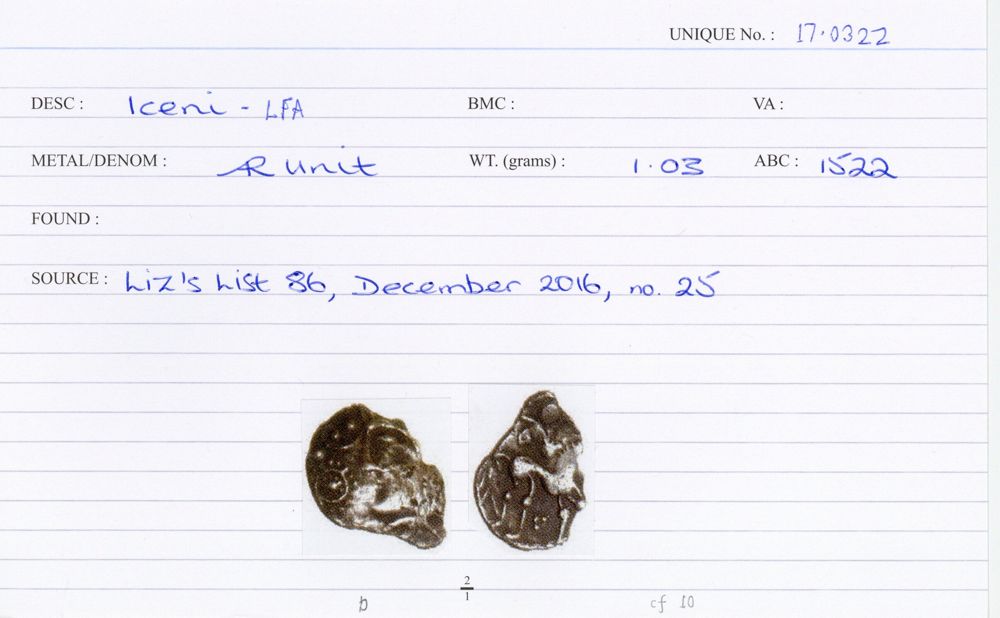 UNIQUE No. : 17·0322
DESC : Iceni - LFA BMC : VA :
METAL/DENOM : AR Unit WT. (grams) : 1·03 ABC : 1522
FOUND :
SOURCE : Liz's List 86, December 2016, no. 25
2
1
b cf 10